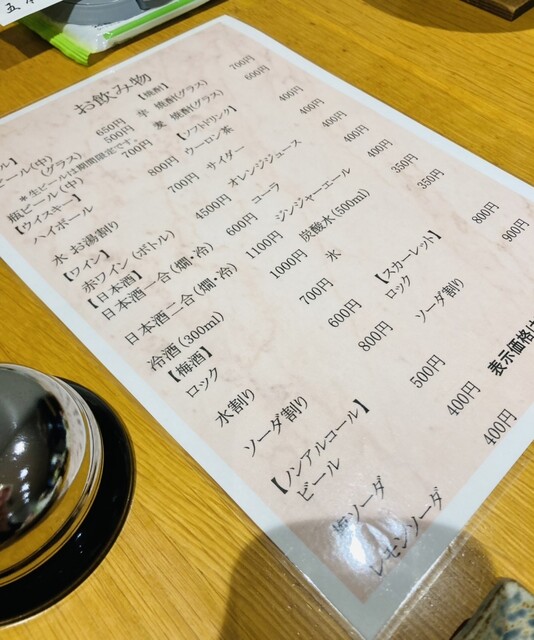 お飲み物
ル】
ビール(中) 650円
(グラス) 500円
*生ビールは期間限定です。
瓶ビール(中) 700円
【ウイスキー】
ハイボール 800円
水 お湯割り 700円
【ワイン】
赤ワイン(ボトル) 4500円
【日本酒】
日本酒一合(燗・冷) 600円
日本酒二合(燗・冷) 1100円
冷酒(300ml) 1000円
【梅酒】
ロック 700円
水割り 600円
ソーダ割り 800円
【ノンアルコール】
ビール 500円
梅ソーダ 400円
レモンソーダ 400円
【焼酎】
芋 焼酎(グラス) 700円
麦 焼酎(グラス) 600円
【ソフトドリンク】
ウーロン茶 400円
サイダー 400円
オレンジジュース 400円
コーラ 400円
ジンジャーエール 400円
炭酸水(500ml) 350円
氷 350円
【スカーレット】
ロック 800円
ソーダ割り 900円
表示価格は